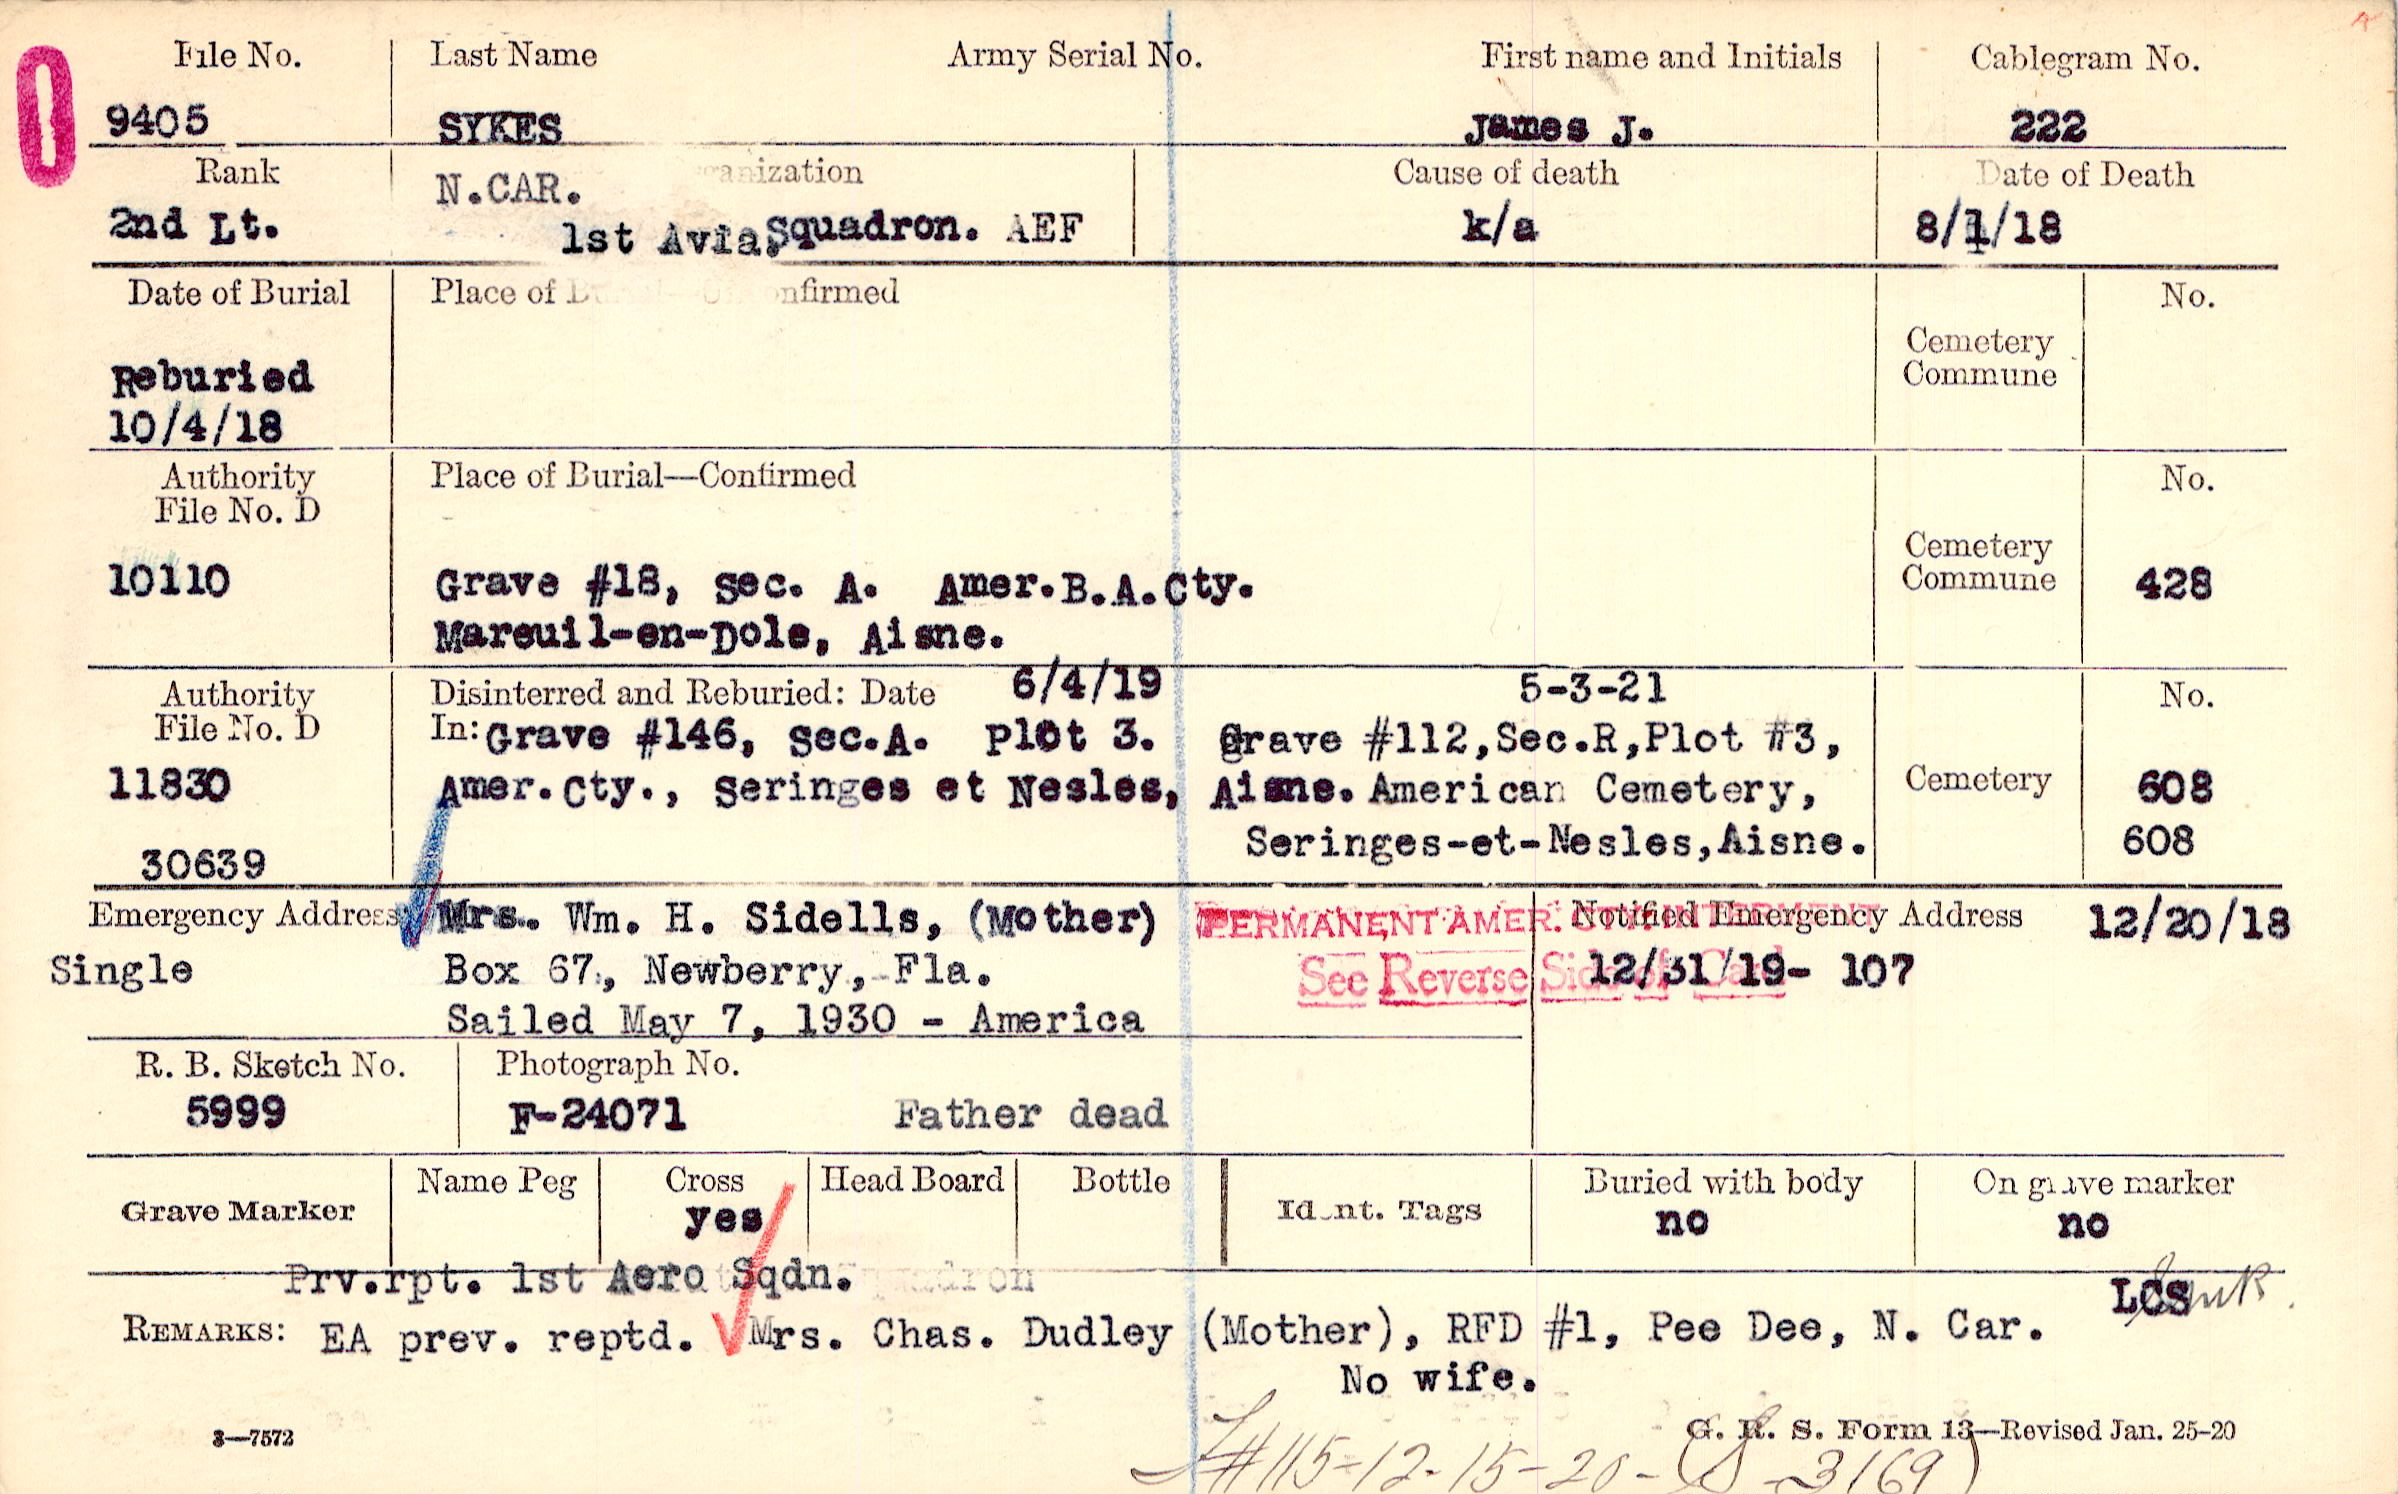 File No. Last Name Army Serial No. First name and Initials Cablegram No.
9405 SYKES James J. 222
Rank Organization Cause of death Date of Death
N.CAR.
2nd Lt. 1st Avia. Squadron. AEF k/a 8/1/18
Date of Burial Place of Burial—Unconfirmed No.
Cemetery
Commune
Reburied
10/4/18
Authority Place of Burial—Confirmed No.
File No. D
Cemetery
10110 Grave #18, Sec. A. Amer.B.A.Cty. Commune 428
Mareuil-en-Dole, Aisne.
Authority Disinterred and Reburied: Date 6/4/19 5-3-21 No.
File No. D In: Grave #146, Sec.A. Plot 3. Grave #112,Sec.R,Plot #3,
11830 Amer.Cty., Seringes et Nesles, Aisne. American Cemetery, Cemetery 608
30639 Seringes-et-Nesles,Aisne. 608
Emergency Address Mrs. Wm. H. Sidells, (Mother) PERMANENT AMER. CTY. INTERMENT Notified Emergency Address 12/20/18
Single Box 67, Newberry, Fla. See Reverse Side of Card 12/31/19- 107
Sailed May 7, 1930 - America
R. B. Sketch No. Photograph No.
5999 F-24071 Father dead
Grave Marker Name Peg Cross Head Board Bottle Ident. Tags Buried with body On grave marker
yes no no
Prv.rpt. 1st Aero Sqdn.
LCS
REMARKS: EA prev. reptd. Mrs. Chas. Dudley (Mother), RFD #1, Pee Dee, N. Car.
No wife.
3—7572 G. R. S. Form 13—Revised Jan. 25-20
#115-12-15-20-(S-3169)